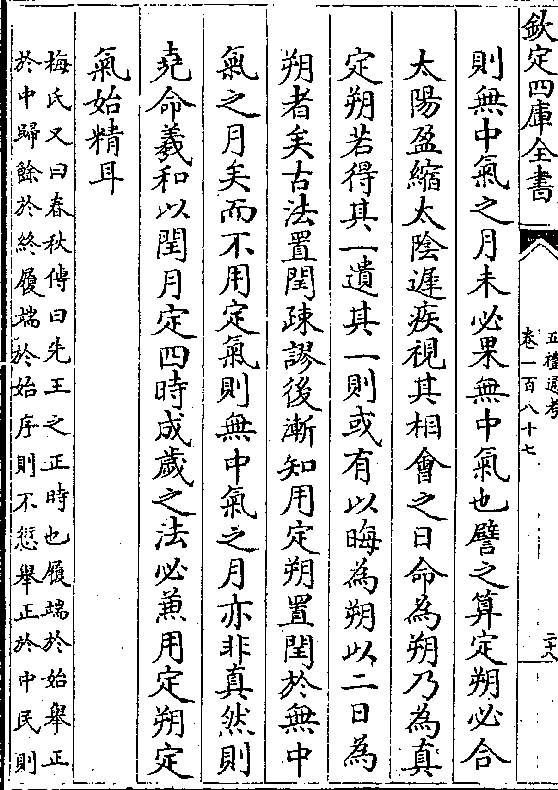 欽定四庫全書
五禮通考
卷一百八十七
二十八
則無中氣之月未必果無中氣也譬之算定朔必合
太陽盈縮太陰遲疾視其相會之日命為朔乃為真
定朔若得其一遺其一則或有以晦為朔以二日為
朔者矣古法置閏疎謬後漸知用定朔置閏於無中
氣之月矣而不用定氣則無中氣之月亦非真然則
堯命羲和以閏月定四時成歲之法必兼用定朔定
氣始精耳
梅氏又曰春秋傳曰先王之正時也履端於始舉正
於中歸餘於終履端於始序則不愆舉正於中民則